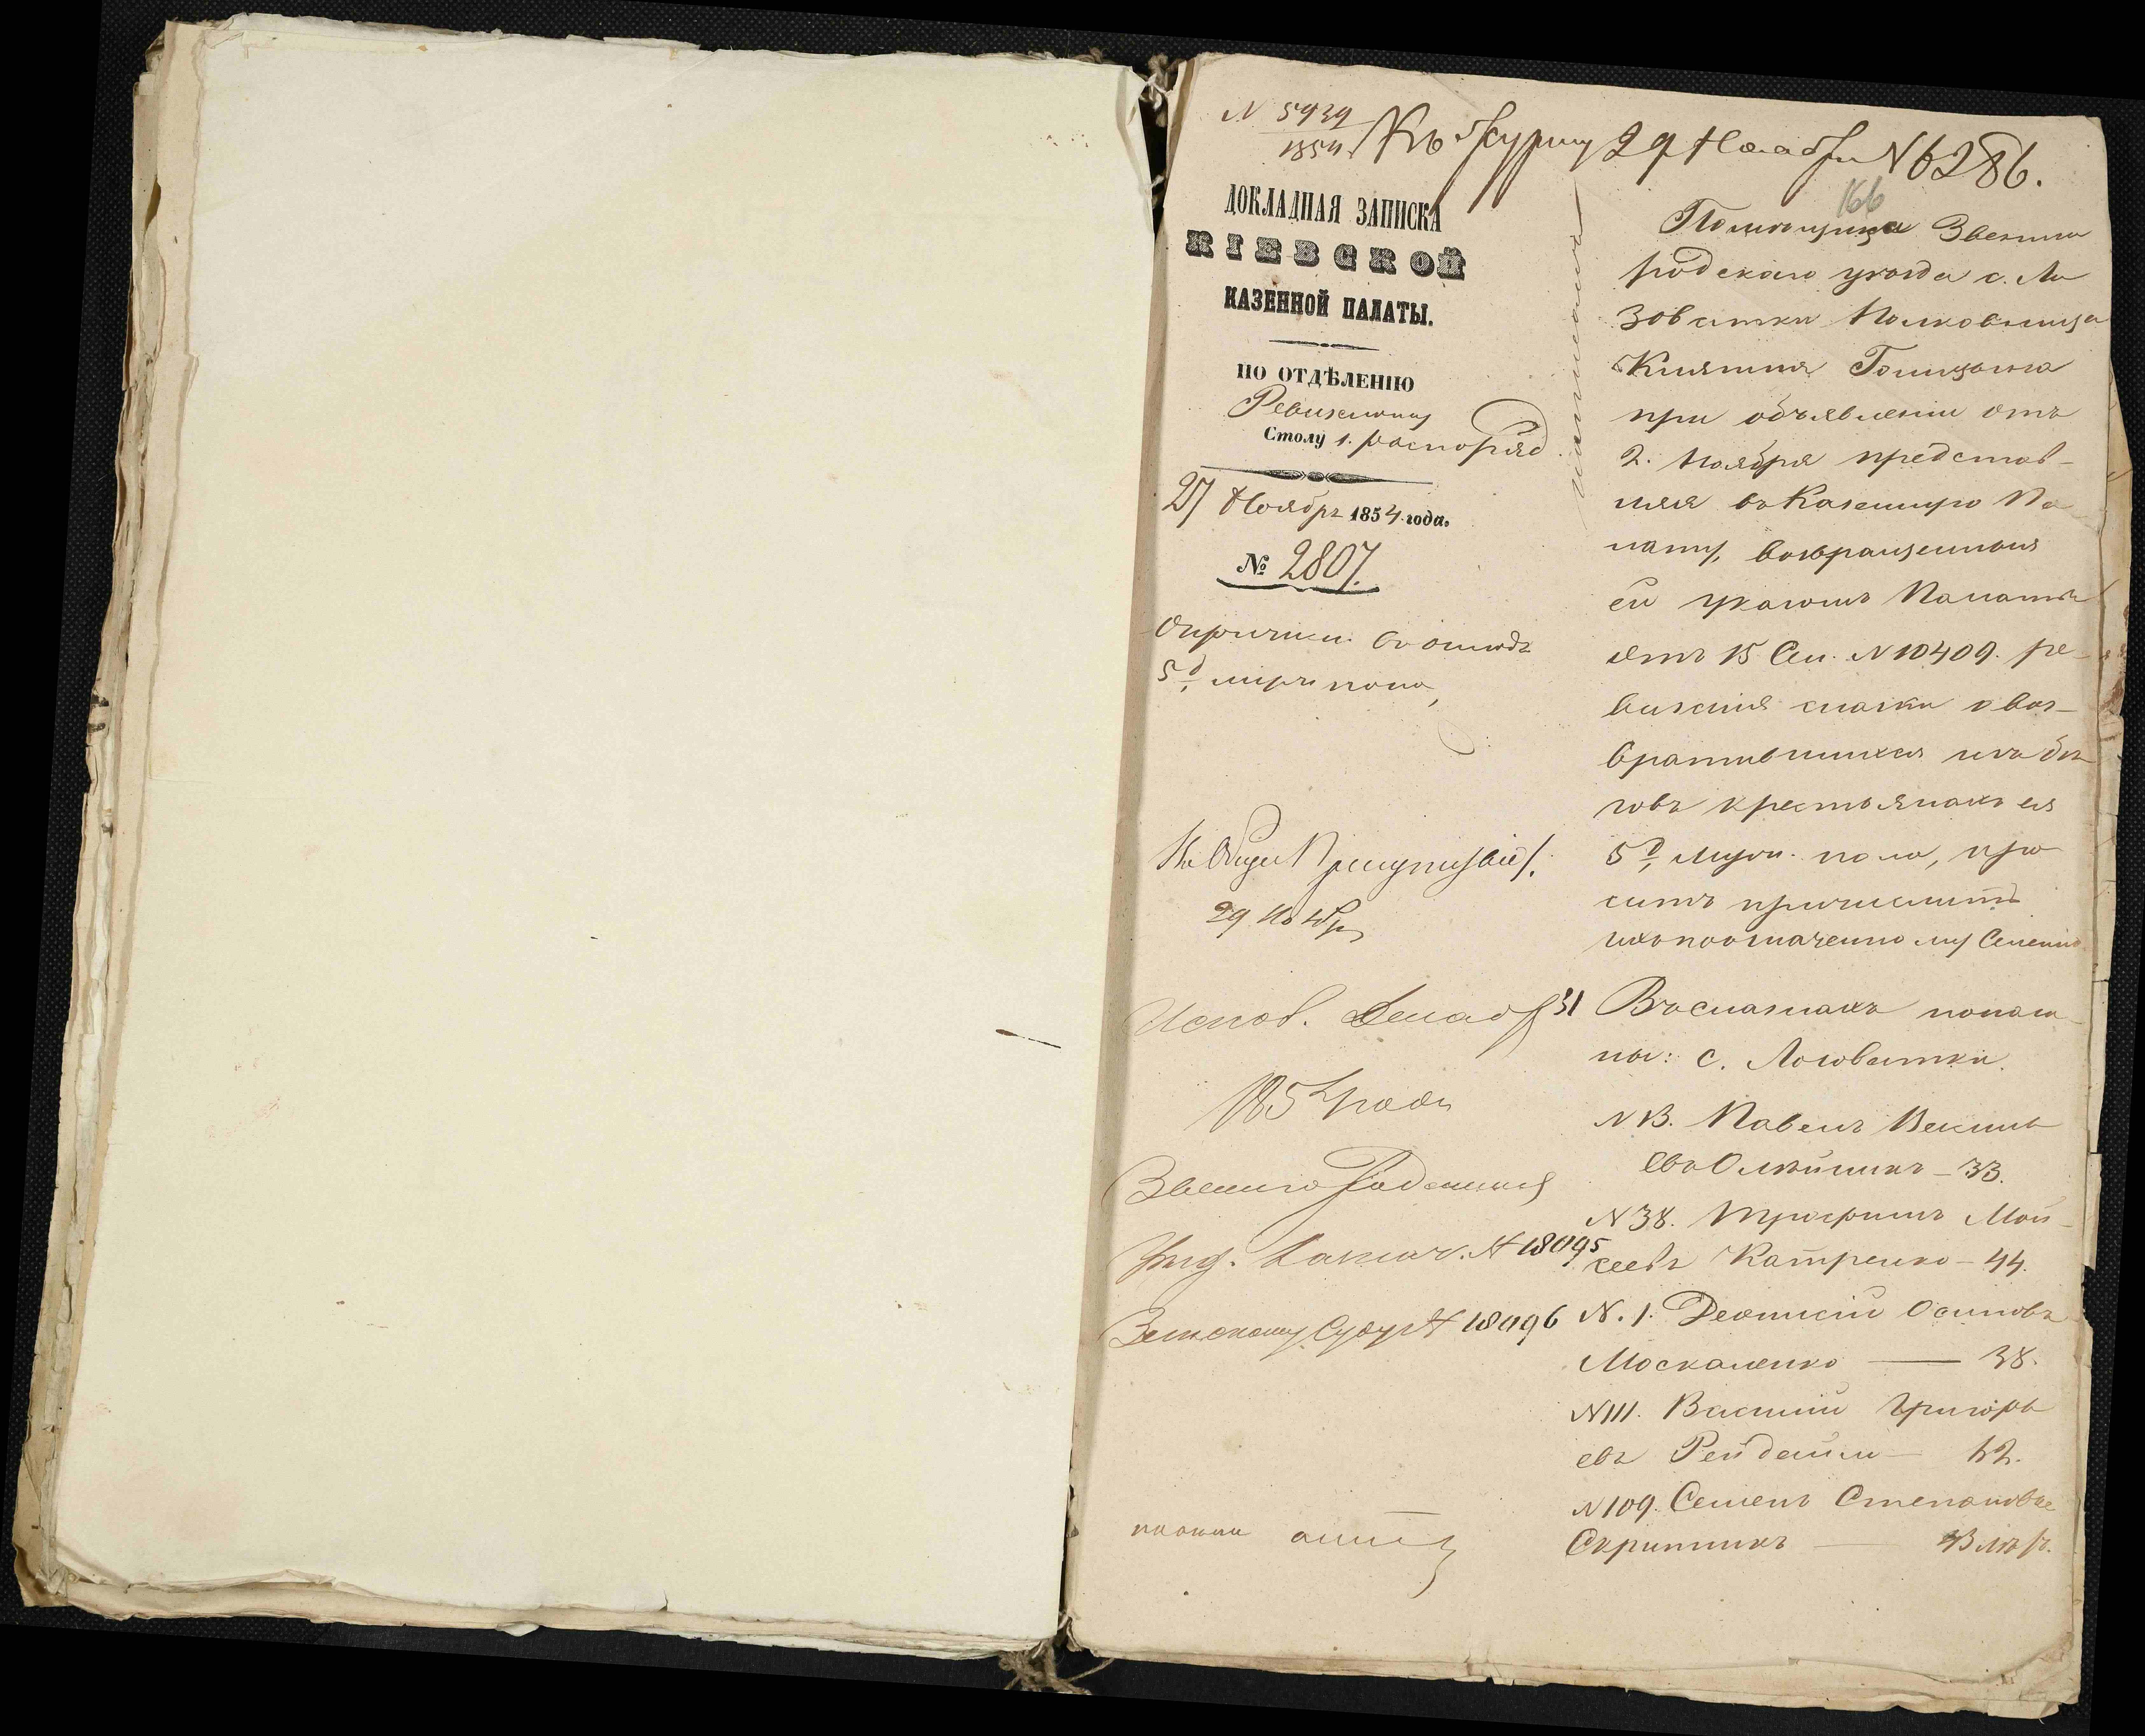 N 5939
1854
Къ Журналу 29 Ноября N 6286.
166
ДОКЛАДНАЯ ЗАПИСКА
КІЕВСКОЙ
КАЗЕННОЙ ПАЛАТЫ.
ПО ОТДѢЛЕНІЮ
Ревизскому
Столу 1. распоряд.
27 Ноября 1854 года.
№ 2807.
О причисл.
5 д. муж. пола,
Въ Общее Присутствіе.
29 Ноября
Испол. Декабр 31
1854 года
Звенигородскимъ
Уѣзд. Казнач. N 18095
Земскому Суду N 18096
Помѣщица Звениго
родскаго уѣзда с. Ло
зоватки Полковница
Княгиня Голицына
при объявленіи отъ
2. Ноября представ-
ляя въ Казенную Па
лату, возвращенныя
ей указомъ Палаты
отъ 15 Сен. N 10409. ре-
визскія сказки о воз-
вратившихся изъ бѣ
говъ крестьянахъ ея
5 д. муж. пола, про
ситъ причислить
ихъ по означенному селенію.
Въ сказкахъ показа-
ны: с. Лозоватки.
N 13. Павелъ
евъ Олѣйникъ – 33.
N 38. Трофимъ Мой-
сеевъ Катренко – 44.
N. 1. Деонисій Осиповъ
Москаленко — 38.
N 111. Василій Григорь
евъ
N 109. Семенъ Степановъ
Скрипникъ — лѣтъ.